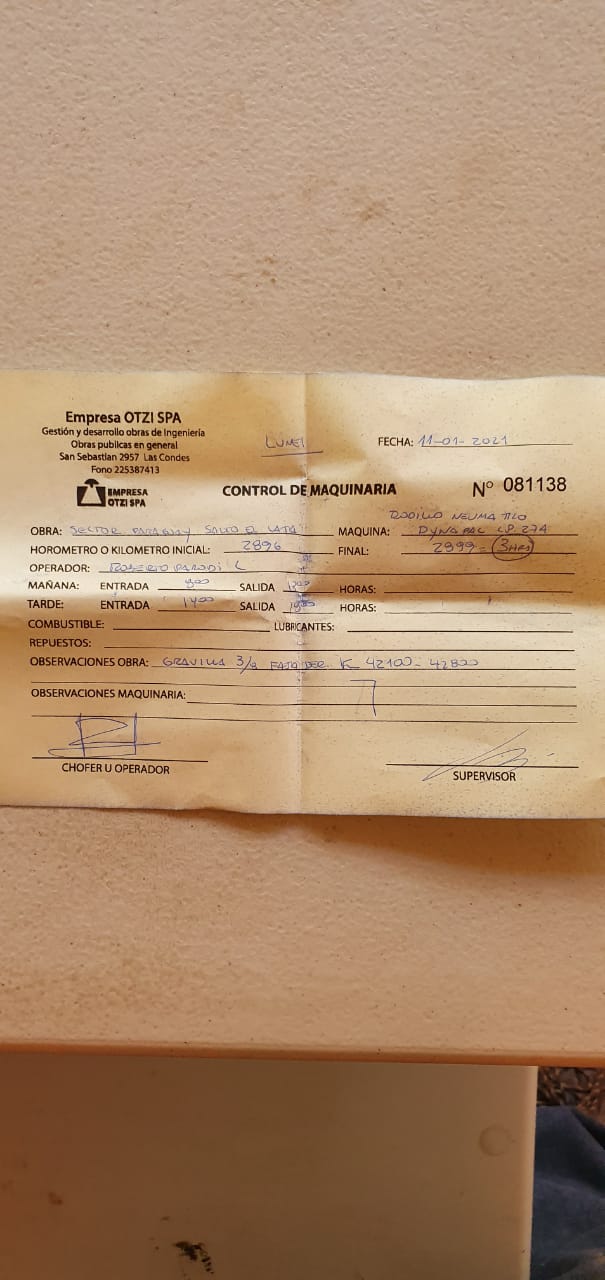 Empresa OTZI SPA
Gestión y desarrollo obras de Ingeniería
Obras publicas en general
San Sebastian 2957 Las Condes
Fono 225387413
EMPRESA
OTZI SPA
LUNES
FECHA: 11-01-2021
CONTROL DE MAQUINARIA
N° 081138
RODILLO NEUMATICO
OBRA: SECTOR PARAGUAY SALTO EL MAQUINA: DYNAPAC CP 274
HOROMETRO O KILOMETRO INICIAL: 2896 FINAL: 2899 = 3HRS
OPERADOR: ROBERTO PARODI L
MAÑANA: ENTRADA 800 SALIDA 1300 HORAS:
TARDE: ENTRADA 1400 SALIDA HORAS:
COMBUSTIBLE: LUBRICANTES:
REPUESTOS:
OBSERVACIONES OBRA: GRAVILLA 3/8 FAJA DER. K 42100 - 42800
OBSERVACIONES MAQUINARIA:
CHOFER U OPERADOR
SUPERVISOR